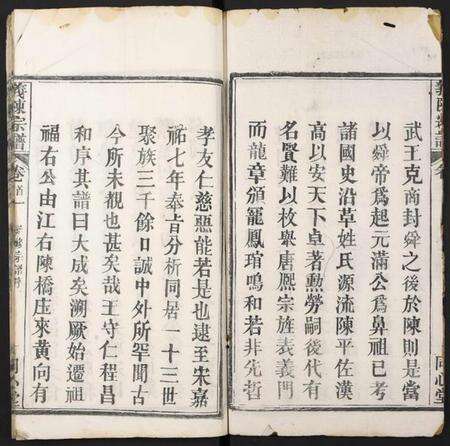 武王克商封舜之後於陳則是當
以舜帝爲起元滿公爲鼻祖已考
諸國史沿革姓氏源流陳平佐漢
高以安天下卓著勲勞嗣後代有
名賢難以枚舉唐熙宗旌表義門
而龍章頒寵鳳琯鳴和若非先哲
孝友仁慈惡能若是也逮至宋嘉
祐七年奉旨分析同居一十三世
聚族三千餘口誠中外所罕聞古
今所未覩也甚矣哉王守仁程昌
和序其譜曰大成矣溯厥始遷祖
福右公由江右陳橋庄來黄向有
義陳宗譜
卷首一
同心堂
義陳宗譜
同心堂